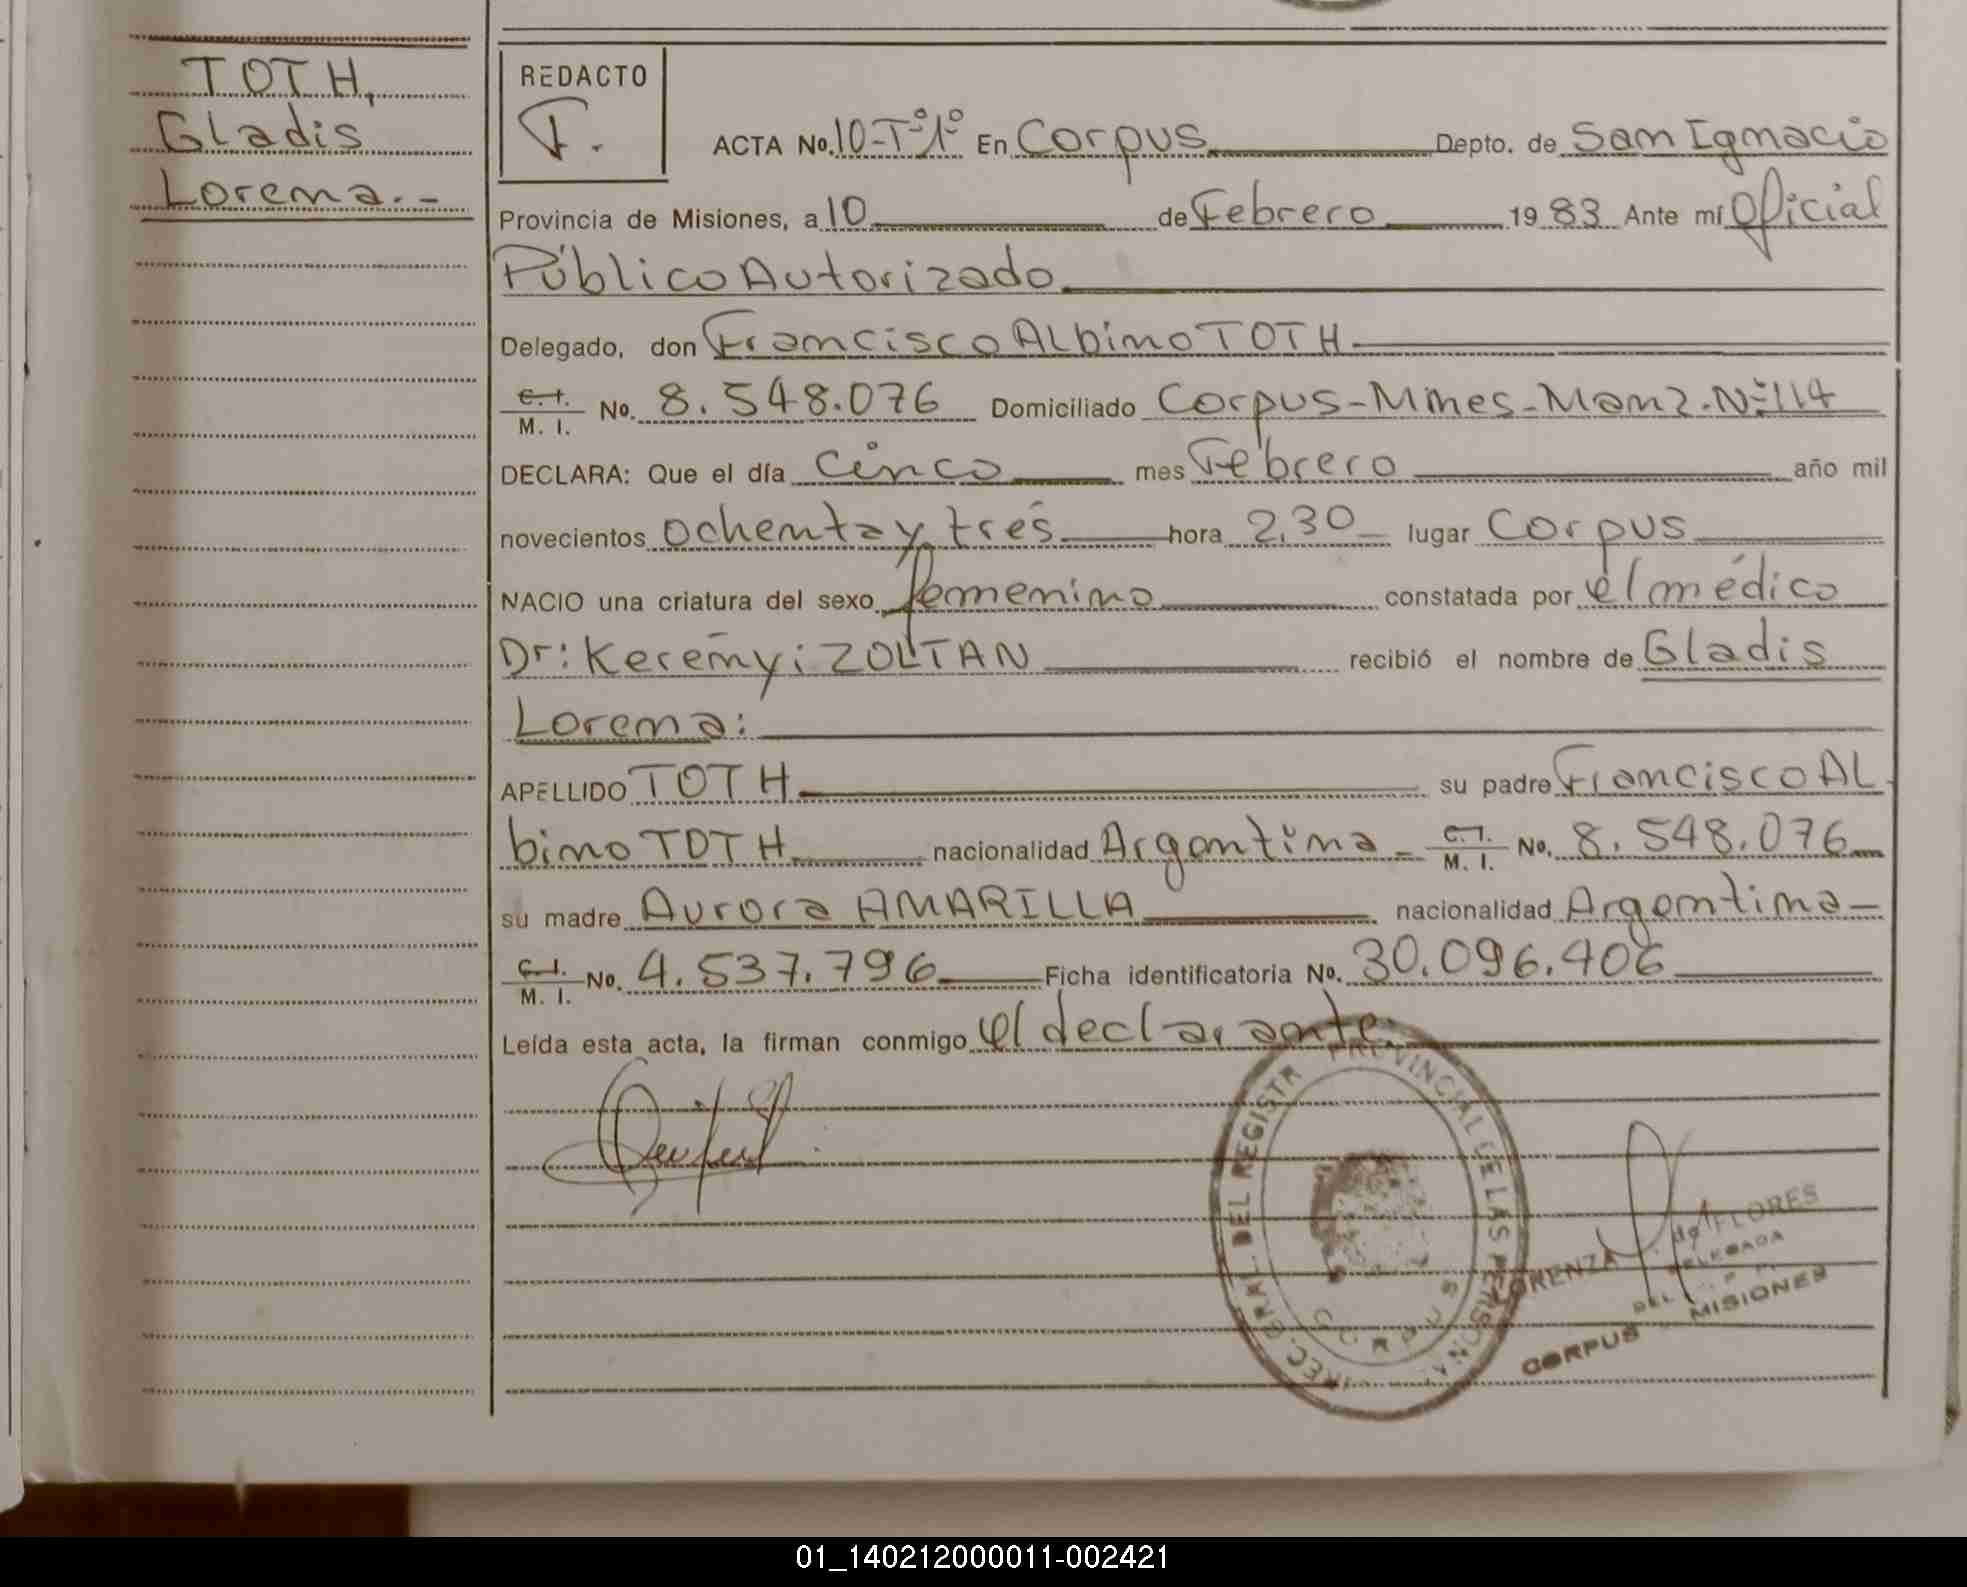 TOTH,
Gladis
Lorena.-
REDACTO
F.
ACTA No. 10-Tº1º En Corpus Depto. de San Ignacio
Provincia de Misiones, a 10 de Febrero 1983 Ante mí Oficial
Público Autorizado
Delegado, don Francisco Albino TOTH
C. I.
M. I. No. 8.548.076 Domiciliado Corpus-Mnes-Manz.Nº114
DECLARA: Que el día cinco mes Febrero año mil
novecientos ochenta y tres hora 2,30 lugar Corpus
NACIO una criatura del sexo femenino constatada por el médico
Dr: Kerényi ZOLTAN recibió el nombre de Gladis
Lorena:
APELLIDO TOTH su padre Francisco Al
bino TOTH nacionalidad Argentina - C. I. M. I. No. 8.548.076
su madre Aurora AMARILLA nacionalidad Argentina-
C. I.
M. I. No. 4.537.796 Ficha identificatoria No. 30.096.406
Leída esta acta, la firman conmigo el declarante
DEL REGISTR PROVINCIAL DE LAS PERSONAS
CORPUS
de FLORES
DELEGADA
CORPUS MISIONES
01_140212000011-002421